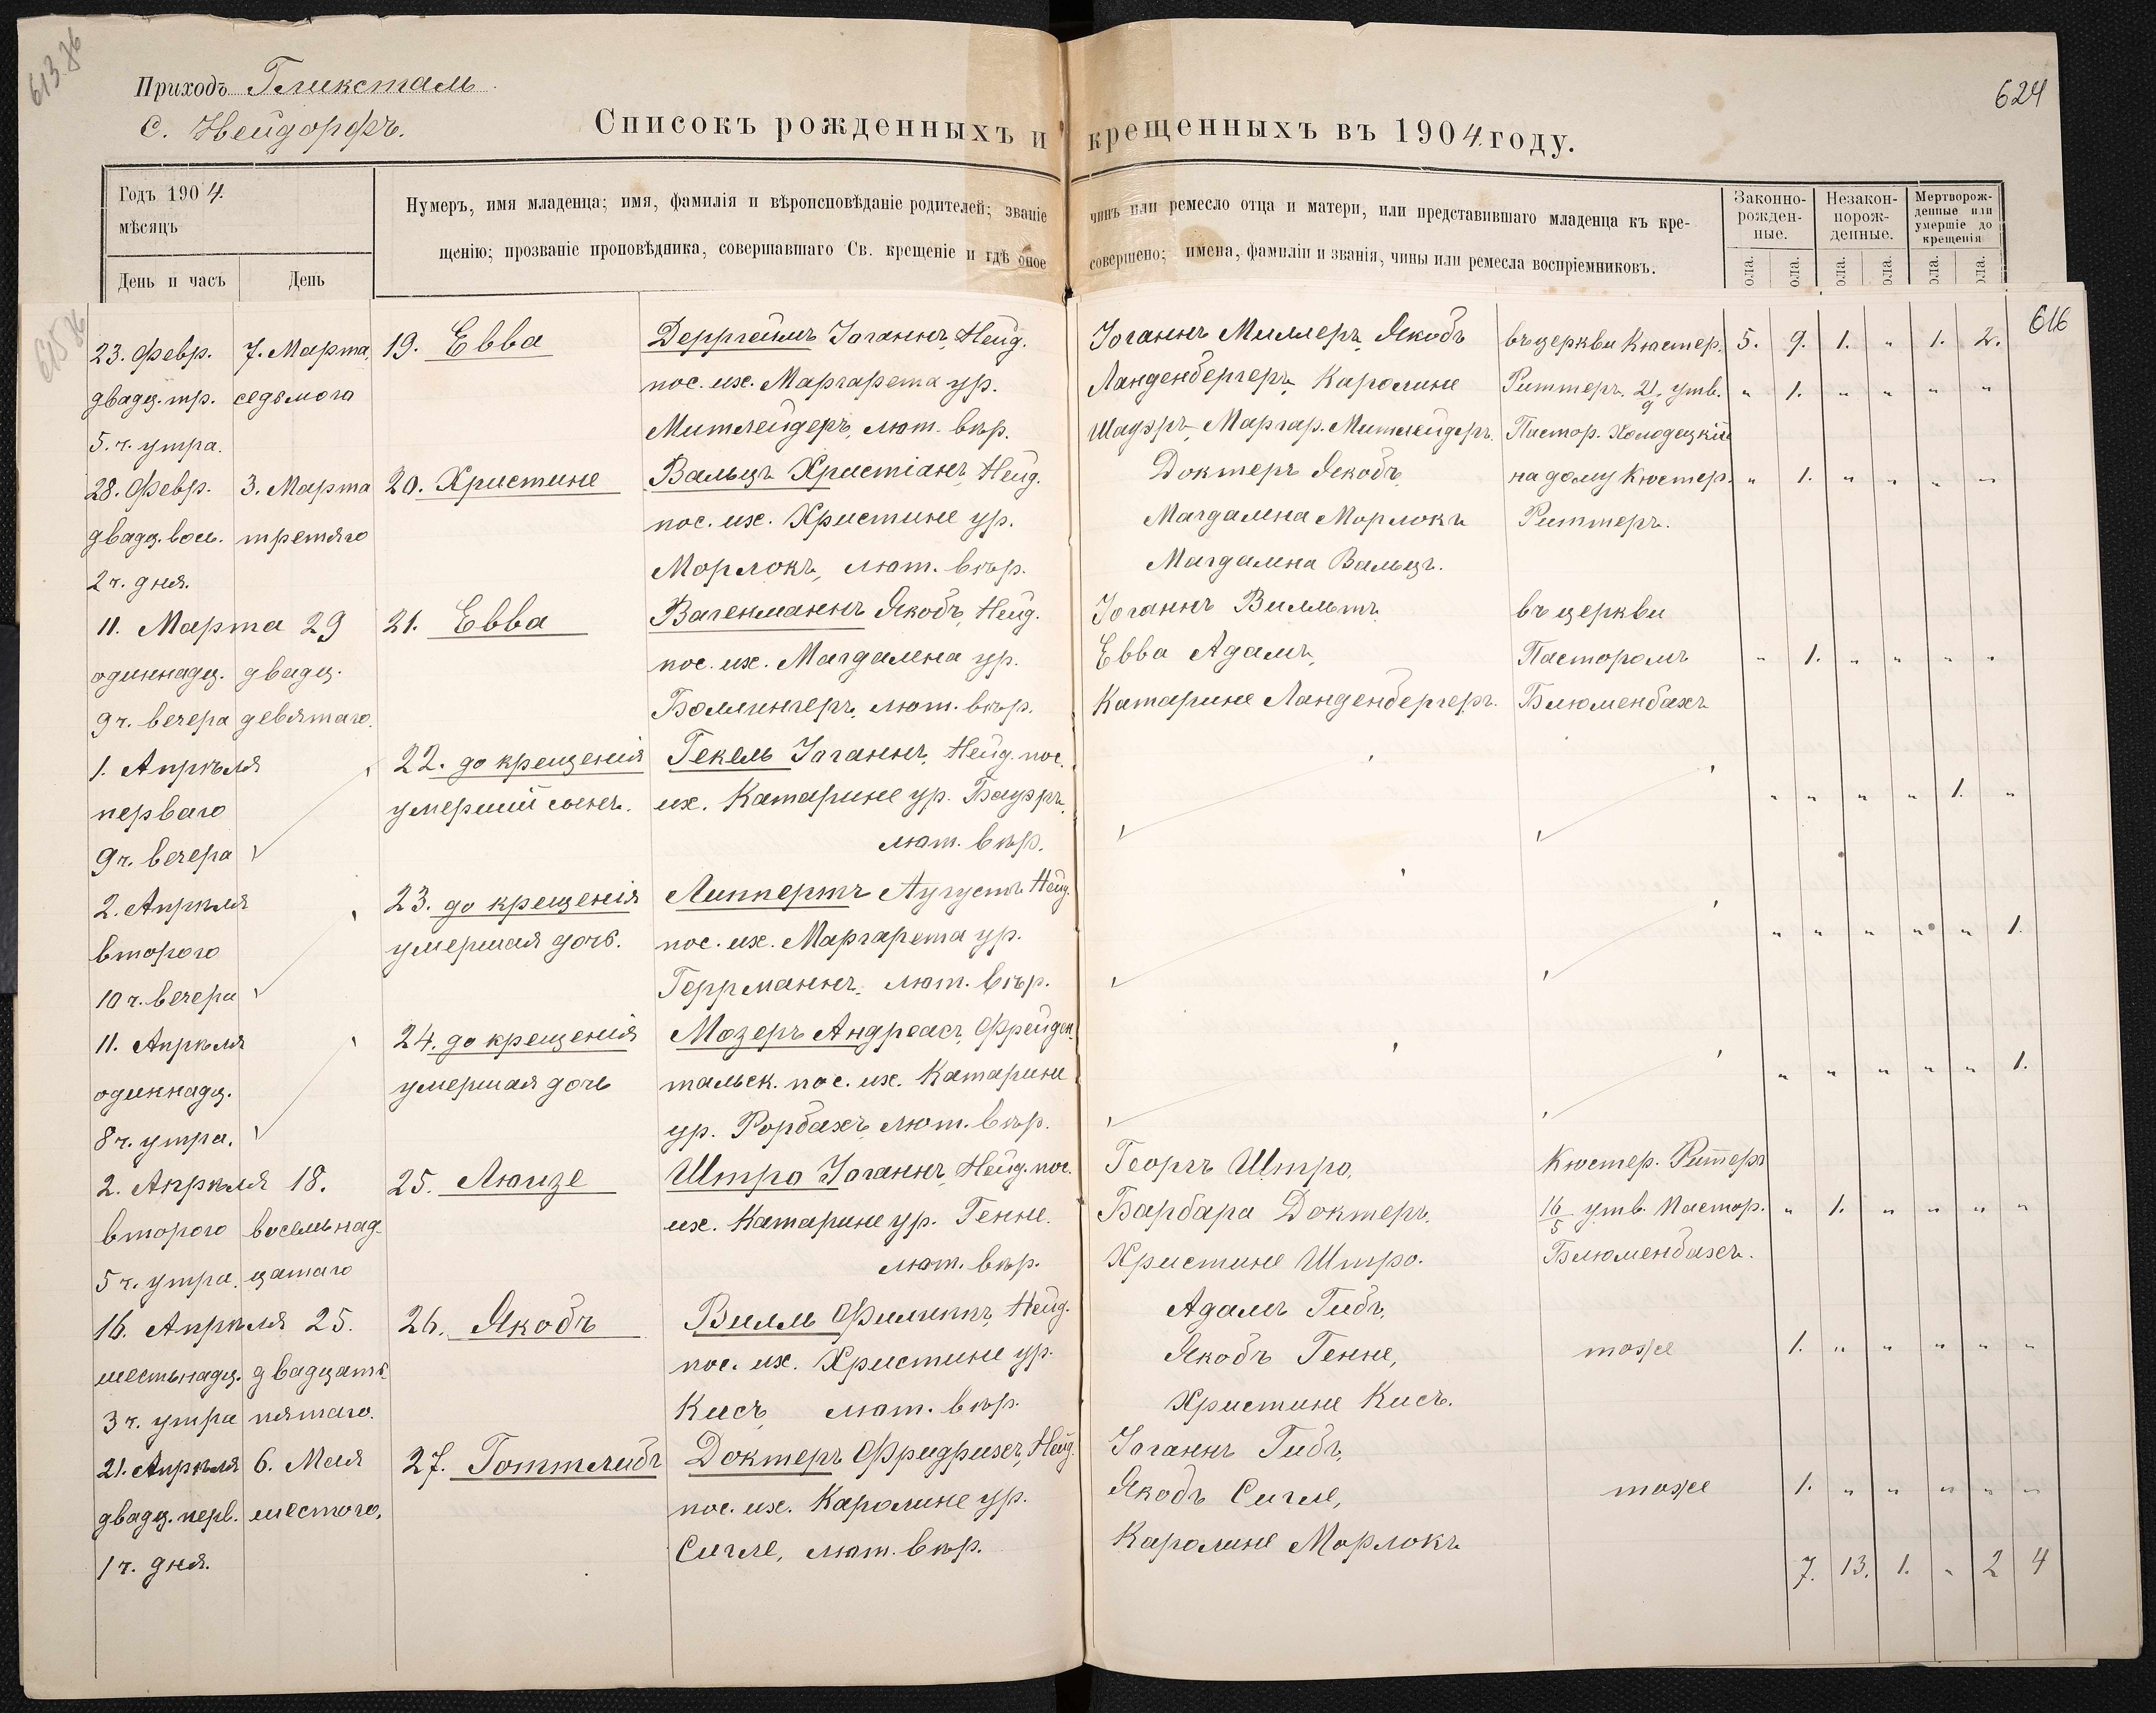 613.76
Приходъ Гликсталь
с. Нейдорфъ.
624
Списокъ рожденныхъ и крещенныхъ въ 1904. году.
Годъ 1904.
мѣсяцъ
День и часъ
День
Нумеръ, имя младенца; имя, фамилія и вѣроисповѣданіе родителей; званіе чинъ или ремесло отца и матери, или представившаго младенца къ кре-
щенію; прозваніе проповѣдника, совершавшаго Св. крещеніе и гдѣ оное совершено; имена, фамиліи и званія, чины или ремесла воспріемниковъ.
Законно-
рожден-
ные.
Незакон-
норож-
денные.
Мертворож-
денные или
умершіе до
крещенія
ола. ола. ола. ола. ола. ола.
616
23. Февр. 7. Марта. 19. Евва Дерргеймъ Іоганнъ, Нейд. Іоганнъ Миллеръ, Якобъ въ церкви Кюстер. 5. 9. 1. " 1. 2.
двадц. тр. седьмого пос. их. Маргарета ур. Ланденбергеръ, Каролине Риттеръ. 21/9 утв. " 1. " " " "
5. ч. утра. Митлейдеръ, лют. вѣр. Шауэръ, Маргар. Митлейдеръ. Пастор. Холодецкій
28. Февр. 3. Марта 20. Христине Вальцъ Христіанъ, Нейд. Доктеръ Якобъ, на дому Кюстер. " 1. " " " "
двадц. вос. третяго пос. их. Христине ур. Магдалена Морлокъ Риттеръ.
2 ч. дня. Морлокъ, лют. вѣр. Магдалина Вальцъ.
11. Марта 29 21. Евва Вагенманнъ Якобъ, Нейд. Іоганнъ Вилльтъ, въ церкви
одиннадц. двадц. пос. их. Магдалена ур. Евва Адамъ, Пасторомъ " 1. " " " "
9 ч. вечера девятаго. Боллингеръ, лют. вѣр. Катарине Ланденбергеръ. Блюменбахъ
1. Апрѣля 22. до крещенія Гекель Іоганнъ, Нейд. пос.
перваго умершій сынъ. их. Катарине ур. Бауэръ, " " " " 1. "
9 ч. вечера лют. вѣр.
2. Апрѣля 23. до крещенія Липпертъ Аугустъ Нейд.
второго умершая дочь. пос. их. Маргарета ур. " " " " " 1.
10 ч. вечера Геррманнъ, лют. вѣр.
11. Апрѣля 24. до крещенія Мозеръ Андреасъ, Фрейден
одиннадц. умершая дочь тальск. пос. их. Катарине " " " " " 1.
8 ч. утра. ур. Рорбахъ, лют. вѣр.
2. Апрѣля 18. 25. Люизе Штро Іоганнъ, Нейд. пос. Георгъ Штро, Кюстер. Риттеръ
второго восемнад- их. Катарине ур. Генне. Барбара Доктеръ, 16/5 утв. Пастор. " 1. " " " "
5 ч. утра. цатаго лют. вѣр. Христине Штро. Блюменбахъ.
16. Апрѣля 25. 26. Якобъ Вилль Филиппъ, Нейд. Адамъ Гибъ,
шестнадц. двадцать пос. их. Христине ур. Якобъ Генне, тоже 1. " " " " "
3 ч. утра пятаго. Кисъ, лют. вѣр. Христине Кисъ.
21. Апрѣля 6. Мая 27. Готтлибъ Доктеръ Фридрихъ, Нейд. Іоганнъ Гибъ,
двадц. перв. шестого, пос. их. Каролине ур. Якобъ Сигле, тоже 1. " " " " "
1 ч. дня. Сигле, лют. вѣр. Каролине Морлокъ
7. 13. 1. " 2 4